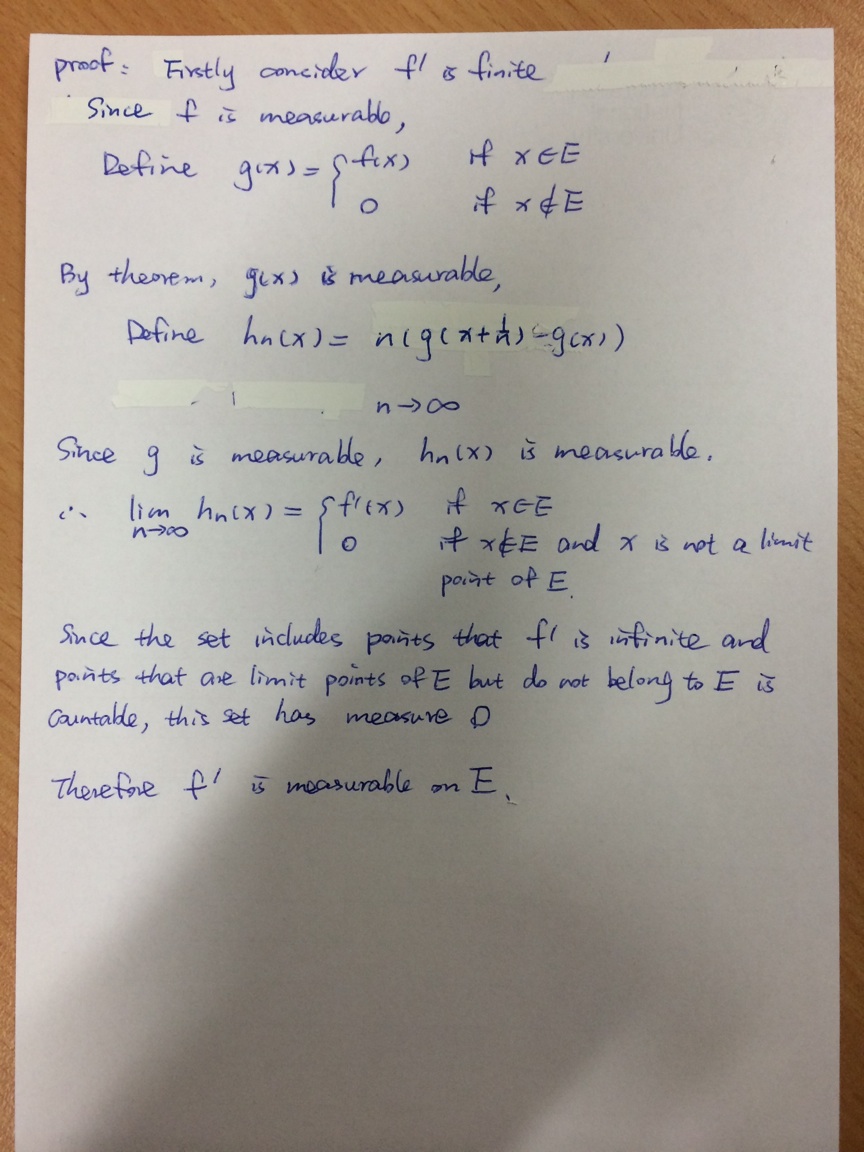 proof: Firstly concider f' is finite
Since f is measurable,
Define g(x) = { f(x) if x ∈ E
0 if x ∉ E
By theorem, g(x) is measurable,
Define hn(x) = n(g(x+1/n) - g(x))
n→∞
Since g is measurable, hn(x) is measurable.
∴ lim n→∞ hn(x) = { f'(x) if x ∈ E
0 if x ∉ E and x is not a limit
point of E.
Since the set includes points that f' is infinite and
points that are limit points of E but do not belong to E is
countable, this set has measure 0
Therefore f' is measurable on E.